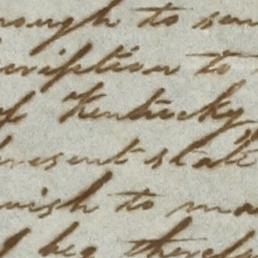 rough to sen
cription to
of Kentucky
present state
wish to ma
I beg therefo